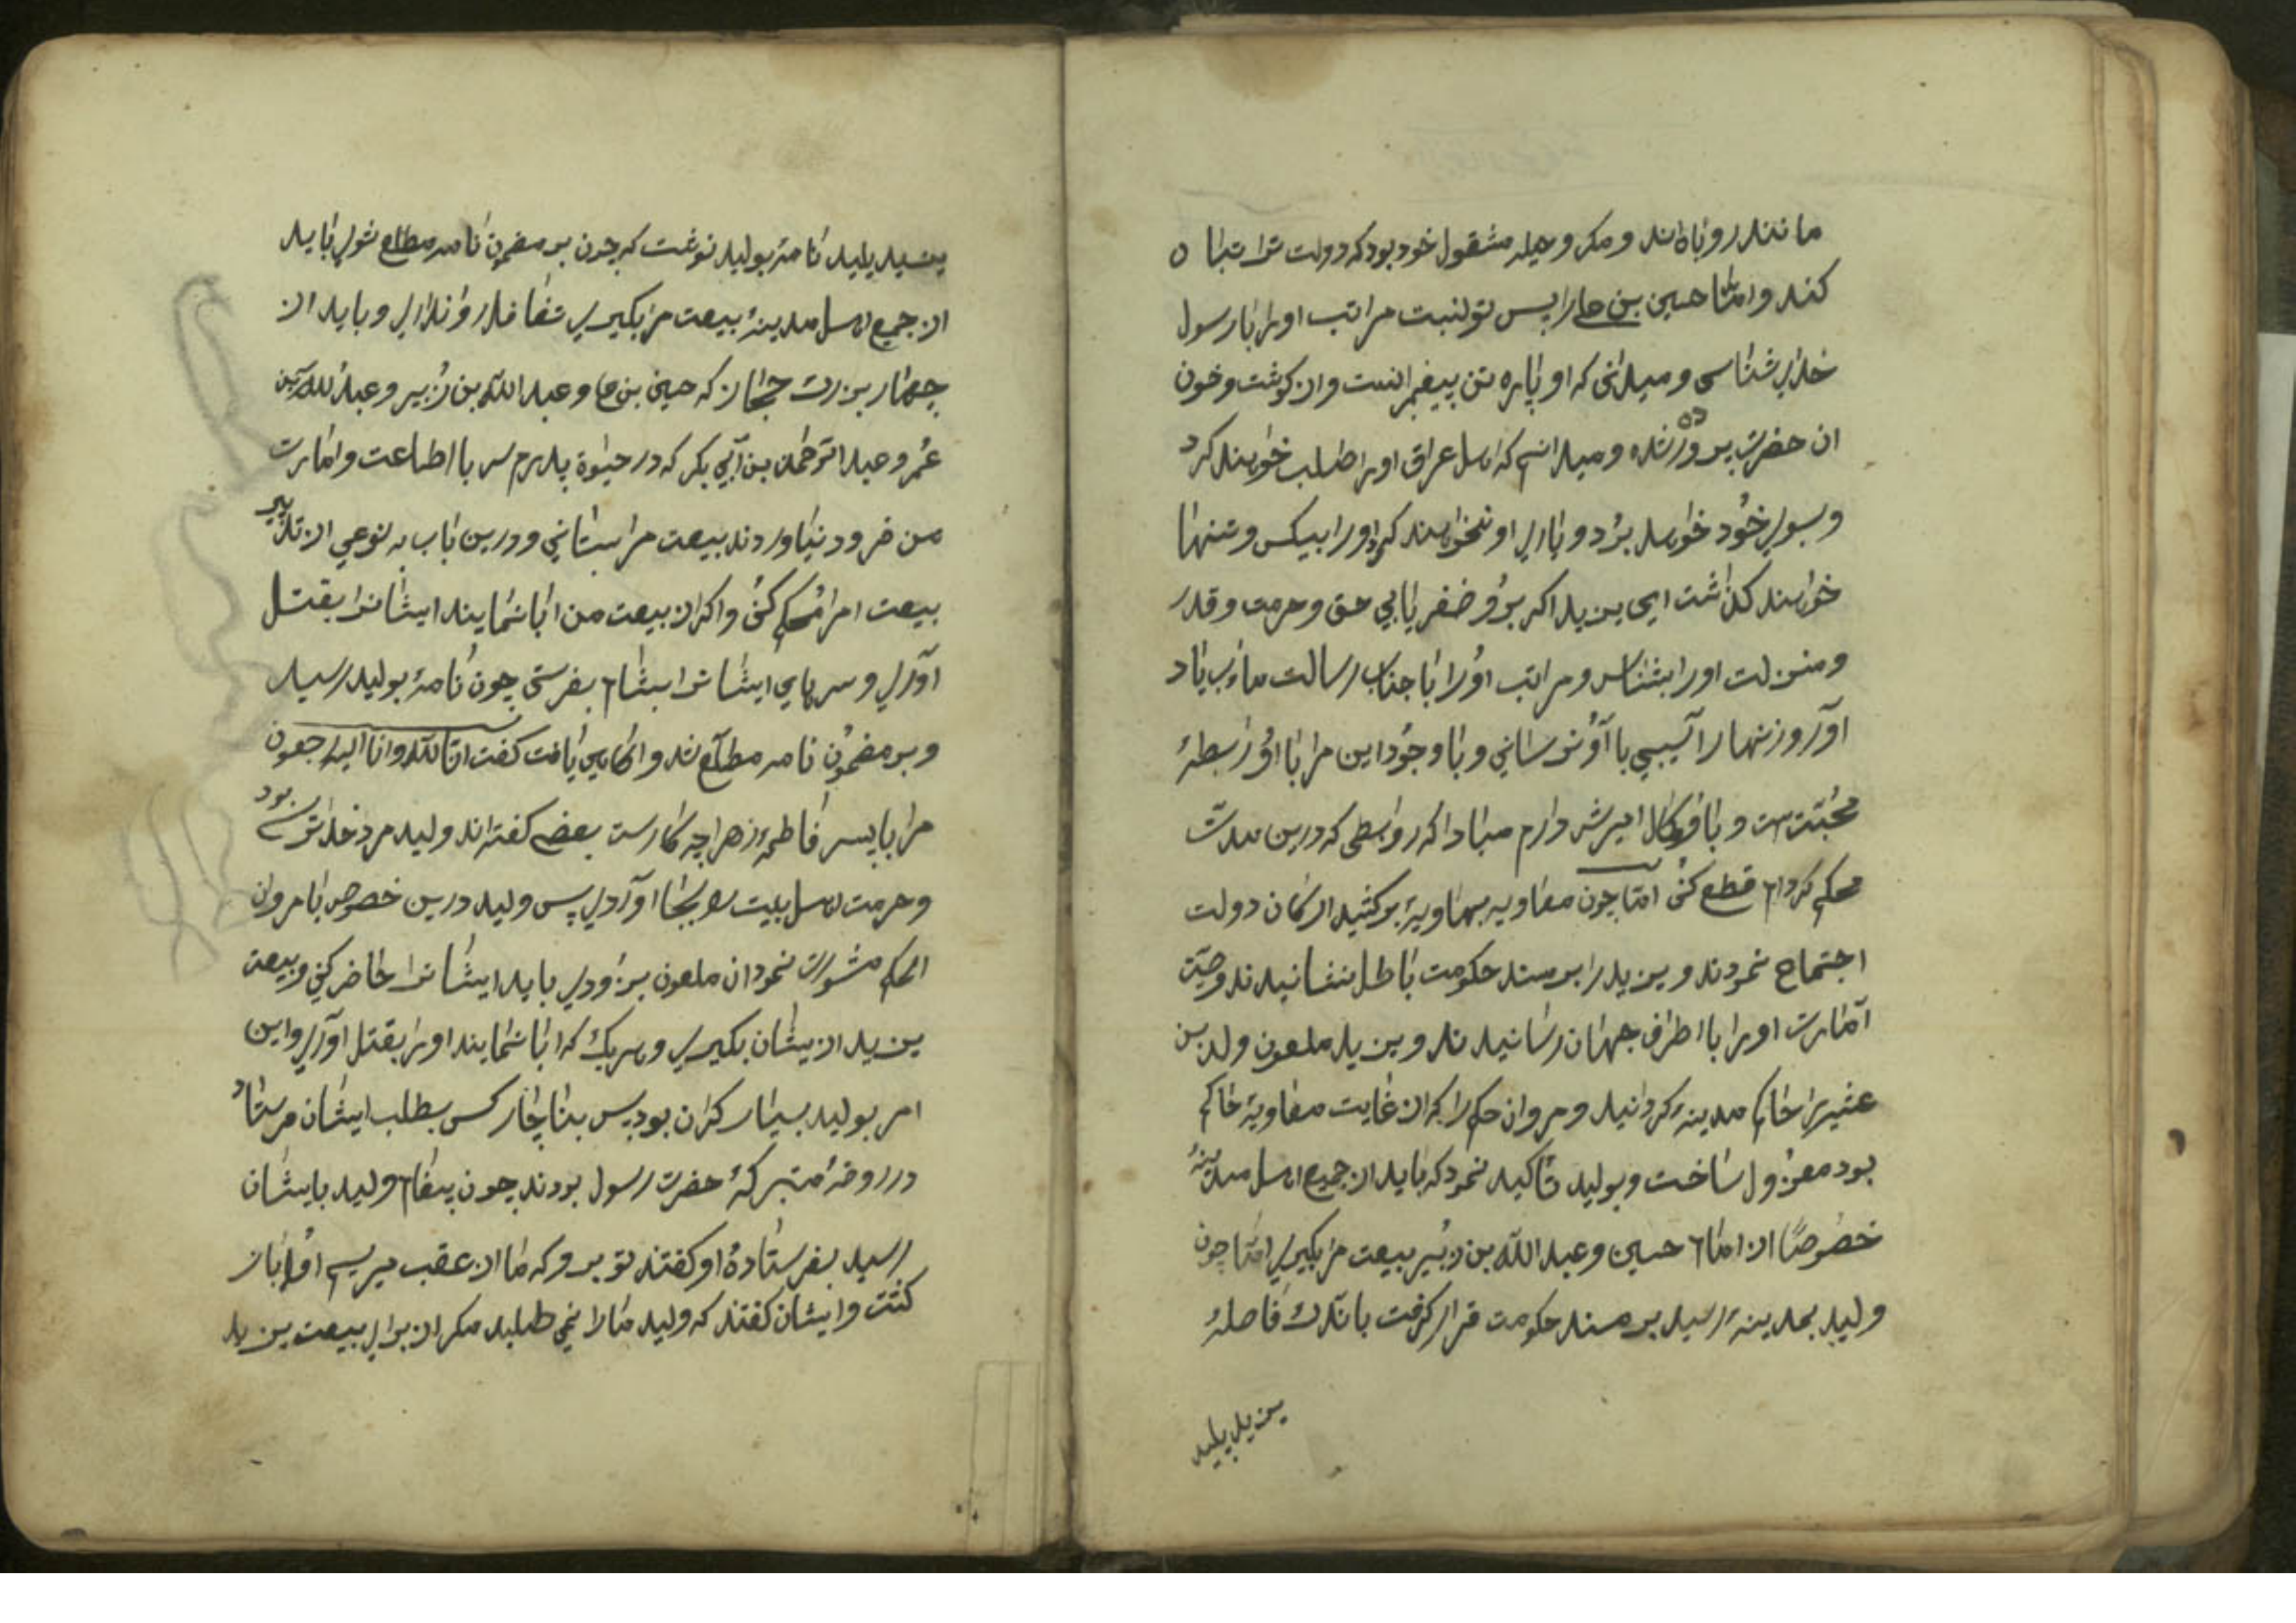 مانند روباه‌اند و مکر و حیله مشقول خود بود که دولت ترا تباه
کند و امّا حسین بن علی را پس تو لنبت مراتب او را با رسول
خدای شناسی و میدانی که او پاره تن پیغمبر انست و از کوشت و خون
ان حضرت پرورده شده و میدانم که اهل عراق او را طلب خواهند کرد
و بسوی خود خواهد برد و یاری او نخواهند کرد او را بیکس و تنها
خواهند کذاشت ای یزید اکر برو ضفر یابی حق و حرمت و قدر
و منزلت او را بشناس و مراتب او را با جناب رسالت ماب یاد
اور و زنهار اسیبی با او نرسانی و با وجود این مرا با او رابطهٔ
محبّت است و با او کمال امیزش دارم مبادا که روابطی که درین مدت
محکم کرده‌ام قطع کنی امّا چون معاویه بهاویه بر کشید ارکان دولت
اجتماع نمودند و یزید را بر مسند حکومت باطل نشانیدند و صیت
امارت او را با اطراف جهان رسانیدند و یزید ملعون ولید بن
عتبه را حاکم مدینه کردانید و مروان حکم را که از غایت معاویه حاکم
بود معزول ساخت و بولید تاکید نمود که باید از جمیع اهل مدینهٔ
خصوصًا از امام حسین و عبد اللّه بن زبیر بیعت مرا بکیری امّا چون
ولید بمدینه رسید بر مسند حکومت قرار کرفت باندک فاصلهٔ
یزید پلید
یزید پلید نامهٔ بولید نوشت که چون بر مضمون نامه مطلع شوی باید
از جمیع اهل مدینهٔ بیعت مرا بکیری تغافل روا نداری و باید از
چهار بزرک حجاز که حسین بن علی و عبد اللّه بن زبیر و عبد اللّه بن
عمر و عبد الرّحمان بن ابی بکر که در حیوة پدرم سر با اطاعت و امارت
من فرود نیاوردند بیعت مرا بستانی و درین باب به نوعی از تدبیر
بیعت امر محکم کنی و اکر از بیعت من ابا نمایند ایشانرا بقتل
آوری و سرهای ایشانرا بشام بفرستی چون نامهٔ بولید رسید
و بر مضمون نامه مطلّع شد و اکاهی یافت کفت انّا للّه و انا الیه راجعون
مرا با پسر فاطمهٔ زهرا چه کارست بعضے کفته‌اند ولید مرد خداترس بود
و حرمت اهل بیت را بجا آوردی پس ولید درین خصوص با مروان
الحکم مشورت نمود ان ملعون بر زودی باید ایشانرا حاضر کنی و بیعت
یزید از یشان بکیری و هر یک که ابا نمایند او را بقتل آوری و این
امر بولید بسیار کران بود پس بناچار کس بطلب ایشان فرستاد
در روضهٔ متبرکهٔ حضرت رسول بودند چون پیغام ولید بایشان
رسید بفرستادهٔ او کفتند تو برو که ما از عقب میریم او باز
کشت و ایشان کفتند که ولید ما را نمی طلبید مکر از برای بیعت یزید